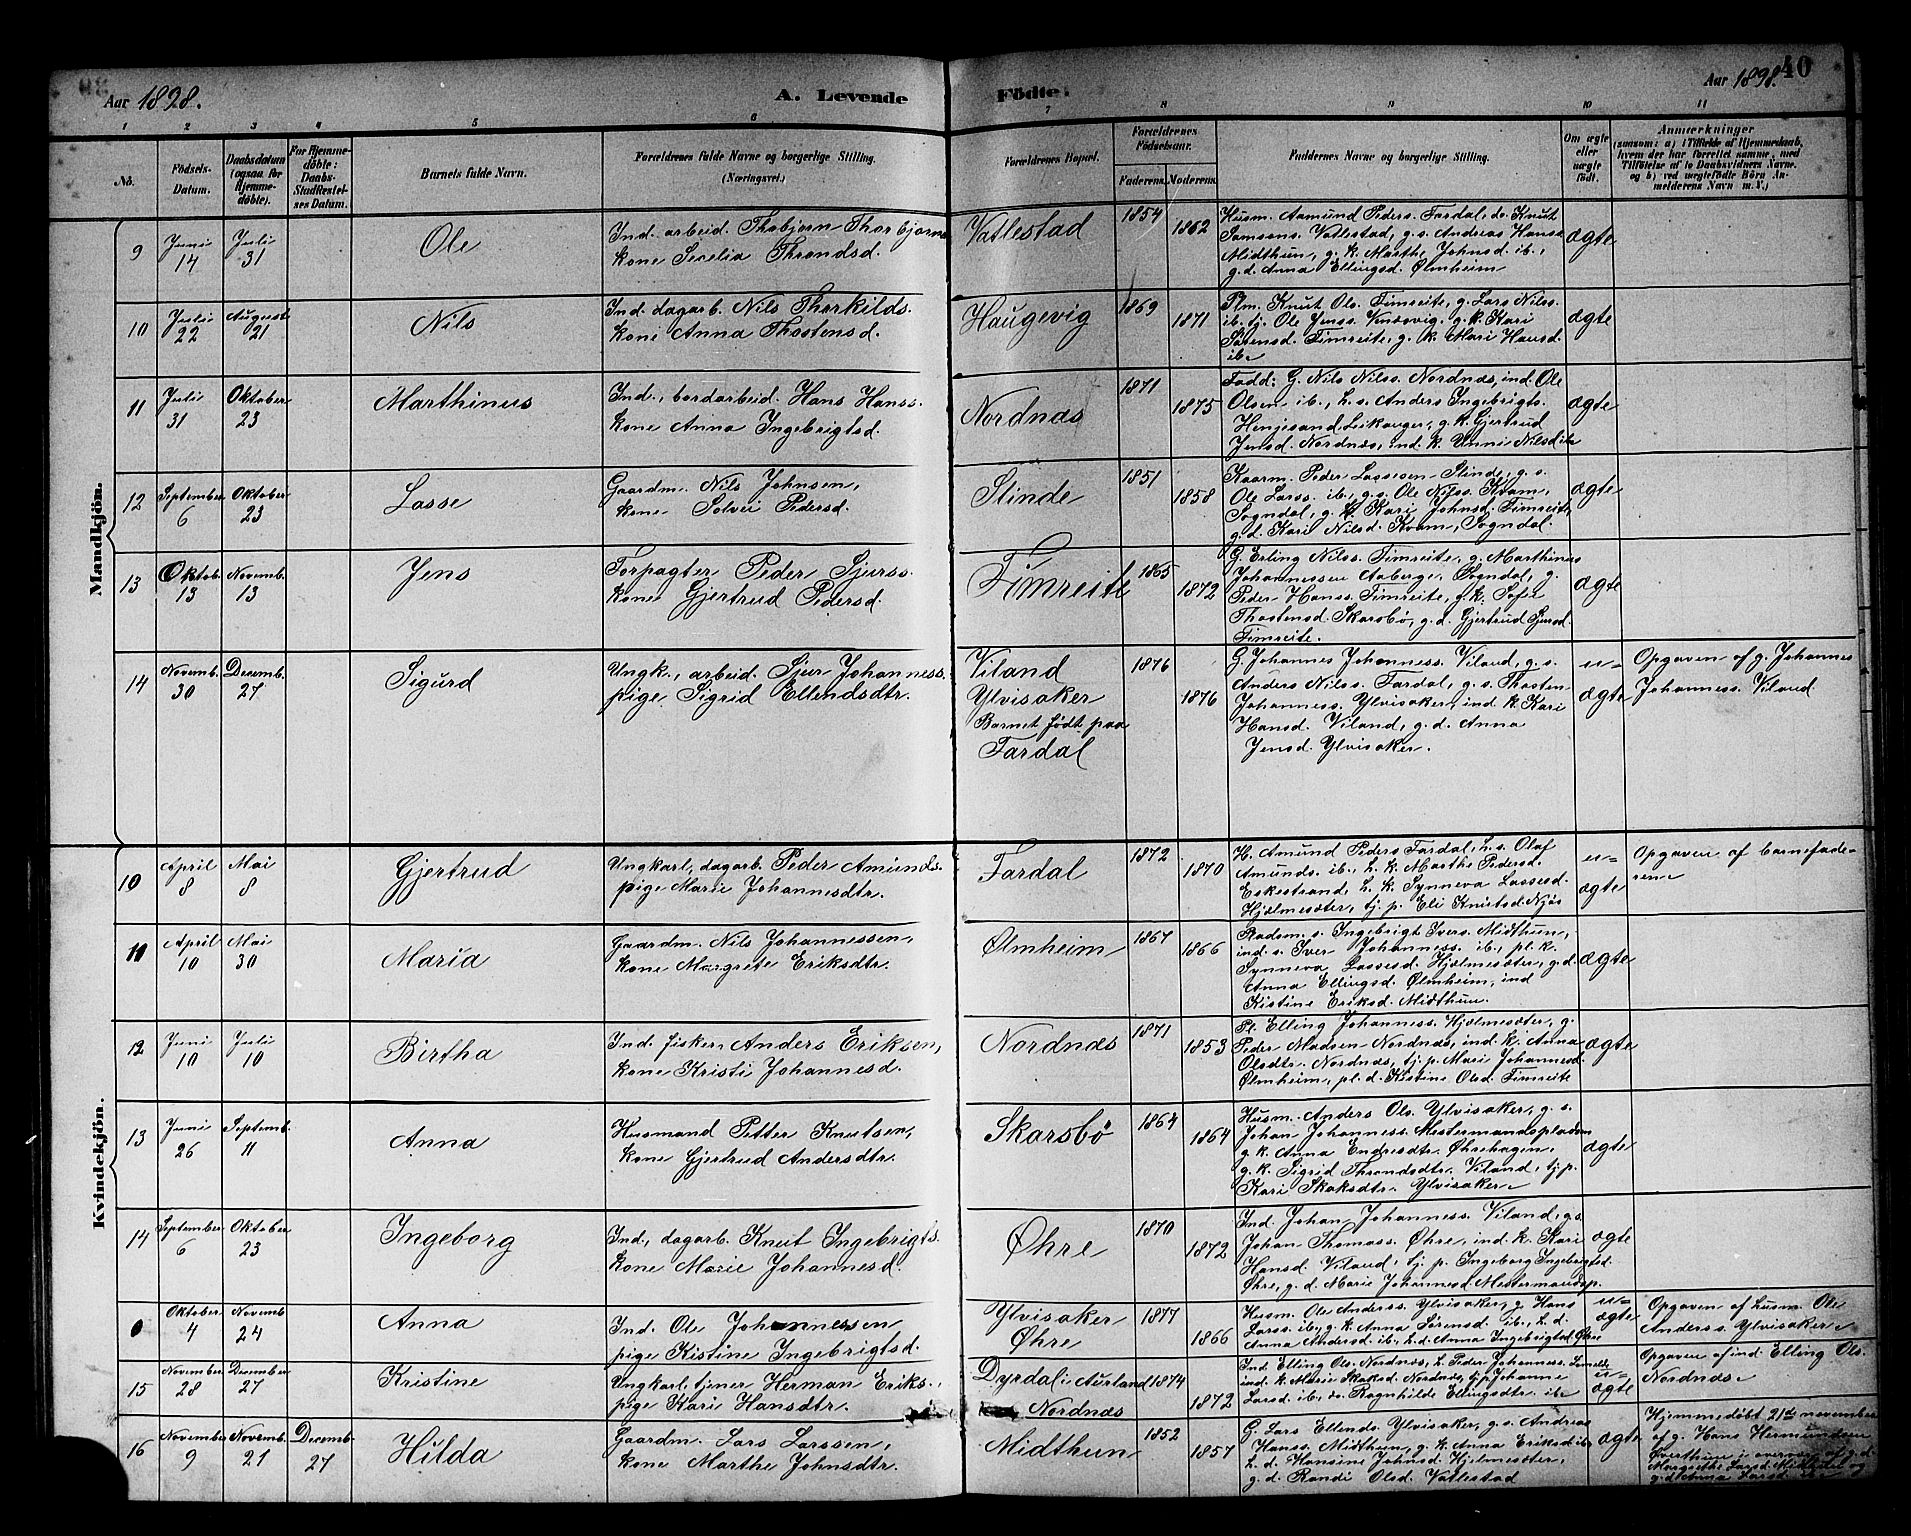 Aar 1898.
A. Levende Födte.
Aar 1898. 40
1 2 3 4 5 6 7 8 9 10 11
No.
Födsels-
Datum.
Daabsdatum
(ogsaa for
Hjemme-
döbte).
For Hjemme-
döbte:
Daabs-
Stadfæstel-
ses Datum.
Barnets fulde Navn.
Forældrenes fulde Navne og borgerlige Stilling.
(Næringsvei.)
Forældrenes Bopæl.
Forældrenes
Födselsaar.
Faderens. Moderens.
Faddernes Navne og borgerlige Stilling.
Om ægte
eller
uægte
födt.
Anmærkninger
(saasom: a) i Tilfælde af Hjemmedaab,
hvem der har forrettet samme, med
Tilföielse af to Daabsvidners Navne,
og b) ved uægtefödte Börn An-
melderens Navn m. V.)
Mandkjön.
9
Juni
14
Juli
31
Ole
Ind. arbeid. Thobjørn Thorbjørns
kone Secelia Throndsd.
Vatlestad
1854
1862
Husm. Aamund Peders. Fardal, do Knut
Samsons. Vatlestad, g. s. Andreas Hanss
Midthun, g. k. Marthe Johnsd. ib.,
g. d. Anna Ellingsd. Ølmheim
ægte
10
Juli
22
August
21
Nils
Ind. dagarb. Nils Thorkilds.
kone Anna Thostensd.
Haugevig
1869
1871
Plm. Knut Ols. Fimreite, g. Lars Nilss.
ib. tj. Ole Jenss. , g. k. Kari
Sørensd. Fimreite, g. k. Mari Hansd.
ib.
ægte
11
Juli
31
Oktober
23
Marthinus
Ind., bordarbeid. Hans Hanss.
kone Anna Ingebrigtsd.
Nordnæs
1871
1875
Fadd: G. Nils Nilss. Nordnæs, ind. Ole
Olsen ib., h. s. Anders Ingebrigts.
Henjesand Leikanger, g. k. Gjertrud
Jensd. Nordnæs, ind. k. Unni Nilsd ib
ægte
12
September
6
Oktober
23
Lasse
Gaardm. Nils Johnsen,
kone Solvei Pedersd.
Slinde
1851
1858
Kaarm. Peder Lassesen Slinde, g. s.
Ole Larss. ib., g. s. Ole Nilss. Kvam,
Sogndal, g. k. Kari Johnsd. Fimreite,
g. d. Kari Nilsd. Kvam, Sogndal.
ægte
13
Oktob.
13
Novemb.
13
Jens
Forpagter Peder Sjurss.
kone Gjertrud Pedersd.
Fimreite
1865
1872
G. Erling Nilss. Fimreite, g. Marthinus
Johannessen Aaberge, Sogndal, g.
Peder Hanss. Fimreite, g. k. Sofie
Thostensd. Skarsbø, g. d. Gjertrud Sjursd.
Fimreite.
ægte
14
Novemb.
30
Decemb.
27
Sigurd
Ungk., arbeid. Sjur Johanness.
pige Sigrid Ellendsdtr.
Viland
Ylvisaker
Barnet født paa
Fardal
1876
1876
G. Johannes Johanness. Viland, g. s.
Anders Nilss. Fardal, g. s. Thosten
Johanness. Ylvisaker, ind. k. Kari
Hansd. Viland, g. d. Anna
Jensd. Ylvisaker.
u=
ægte
Opgaven af g. Johannes
Johanness. Viland
Kvindekjön.
10
April
8
Mai
8
Gjertrud
Ungkarl, dagarb. Peder Amunds.
pige Marie Johannesdtr.
Fardal
1872
1870
H. Amund Peders Fardal, h. s. Olaf
Amunds. ib., h. k. Marthe Pedersd.
Eskestrand, h. k. Synneva Lassesd.
Hjælmesæter, tj. p. Eli Knutsd. Njøs
u=
ægte
Opgaven af barnefade-
ren
11
April
10
Mai
30
Maria
Gaardm. Nils Johannessen,
kone Margrete Eriksdtr.
Ølmheim
1867
1866
Radsm. s. Ingebrigt Ivers. Midthun,
ind. s. Iver Johanness. ib., pl. k.
Synneva Lassesd. Hjælmesæter, g. d.
Anna Ellingsd. Ølmheim, ind
Kistine Eriksd. Midthun.
ægte
12
Juni
10
Juli
10
Birtha
Ind. fisker Anders Eriksen,
kone Kristi Johannesd.
Nordnæs
1871
1853
Pl. Elling Johanness. Hjælmesæter, g.
Peder Madsen Nordnæs, ind. k. Anna
Olsdtr. Nordnæs, tj. p. Mari Johannesd.
Ølmheim, pl. d. Kistine Olsd. Fimreite
ægte
13
Juni
26
Septemb.
11
Anna
Husmand Petter Knutsen,
kone Gjertrud Andersdtr.
Skarsbø
1864
1864
Husm. Anders Ols. Ylvisaker, g. s.
Johan Johanness. Mestermandspladsen
g. k. Anna Endresdtr. Øhrehagen,
g. k. Sigrid Throndsdtr. Viland, tj. p.
Kari Skaksdtr. Ylvisaker
ægte
14
September
6
Oktober
23
Ingeborg
Ind., dagarb. Knut Ingebrigts.
kone Marie Johannesd.
Øhre
1870
1872
Ind. Johan Johanness. Viland, g. s.
Johan Thomass. Øhre, ind. k. Kari
Hansd. Viland, tj. p. Ingeborg Ingebrigtsd.
Øhre, g. d. Marie Johannesd. Mestermandsp.
ægte
Oktober
4
Novemb
24
Anna
Ind. Ole Johannessen
pige Kistine Ingebrigtsd.
Ylvisaker
Øhre
1877
1866
Husm. Ole Anderss. Ylvisaker, g. Hans
Larss. ib., g. k. Anna Sørensd. ib., h. d.
Anna Andersd. ib., h. d. Anna Ingebrigtsd. Øhre
u=
ægte
Opgaven af husm. Ole
Anders s. Ylvisaker
15
November
28
December
27
Kristine
Ungkarl tjener Herman Eriks.,
pige Kari Hansdtr.
Dyrdal i Aurland
Nordnæs
1874
1872
Ind. Elling Ols. Nordnæs, h. Peder Johanness.
ind. k. Marie Skaksd. Nordnæs, tj. p. Johanne
Larsd. ib., do. Ragnhilde Ellingsdtr. ib.
u=
ægte
Opgaven af ind. Elling Ols.
Nordnæs.
16
November
9
Novemb.
21
Decemb.
27
Hilda
Gaardm. Lars Larssen,
kone Marthe Johnsdtr.
Midthun
1852
1857
G. Lars Ellends. Ylvisaker, g. s. Andreas
Hanss. Midthun, g. k. Anna Eriksd ib
h. d. Hansine Johnsd. Hjelmesæter,
g. d. Randi Olsd. Vatlestad
ægte
Hjemmedøbt 21de november
af g. Hans Hermundsen
i overvær af g. d.
Margrethe Larsd. og
g. d. Anna Larsd.